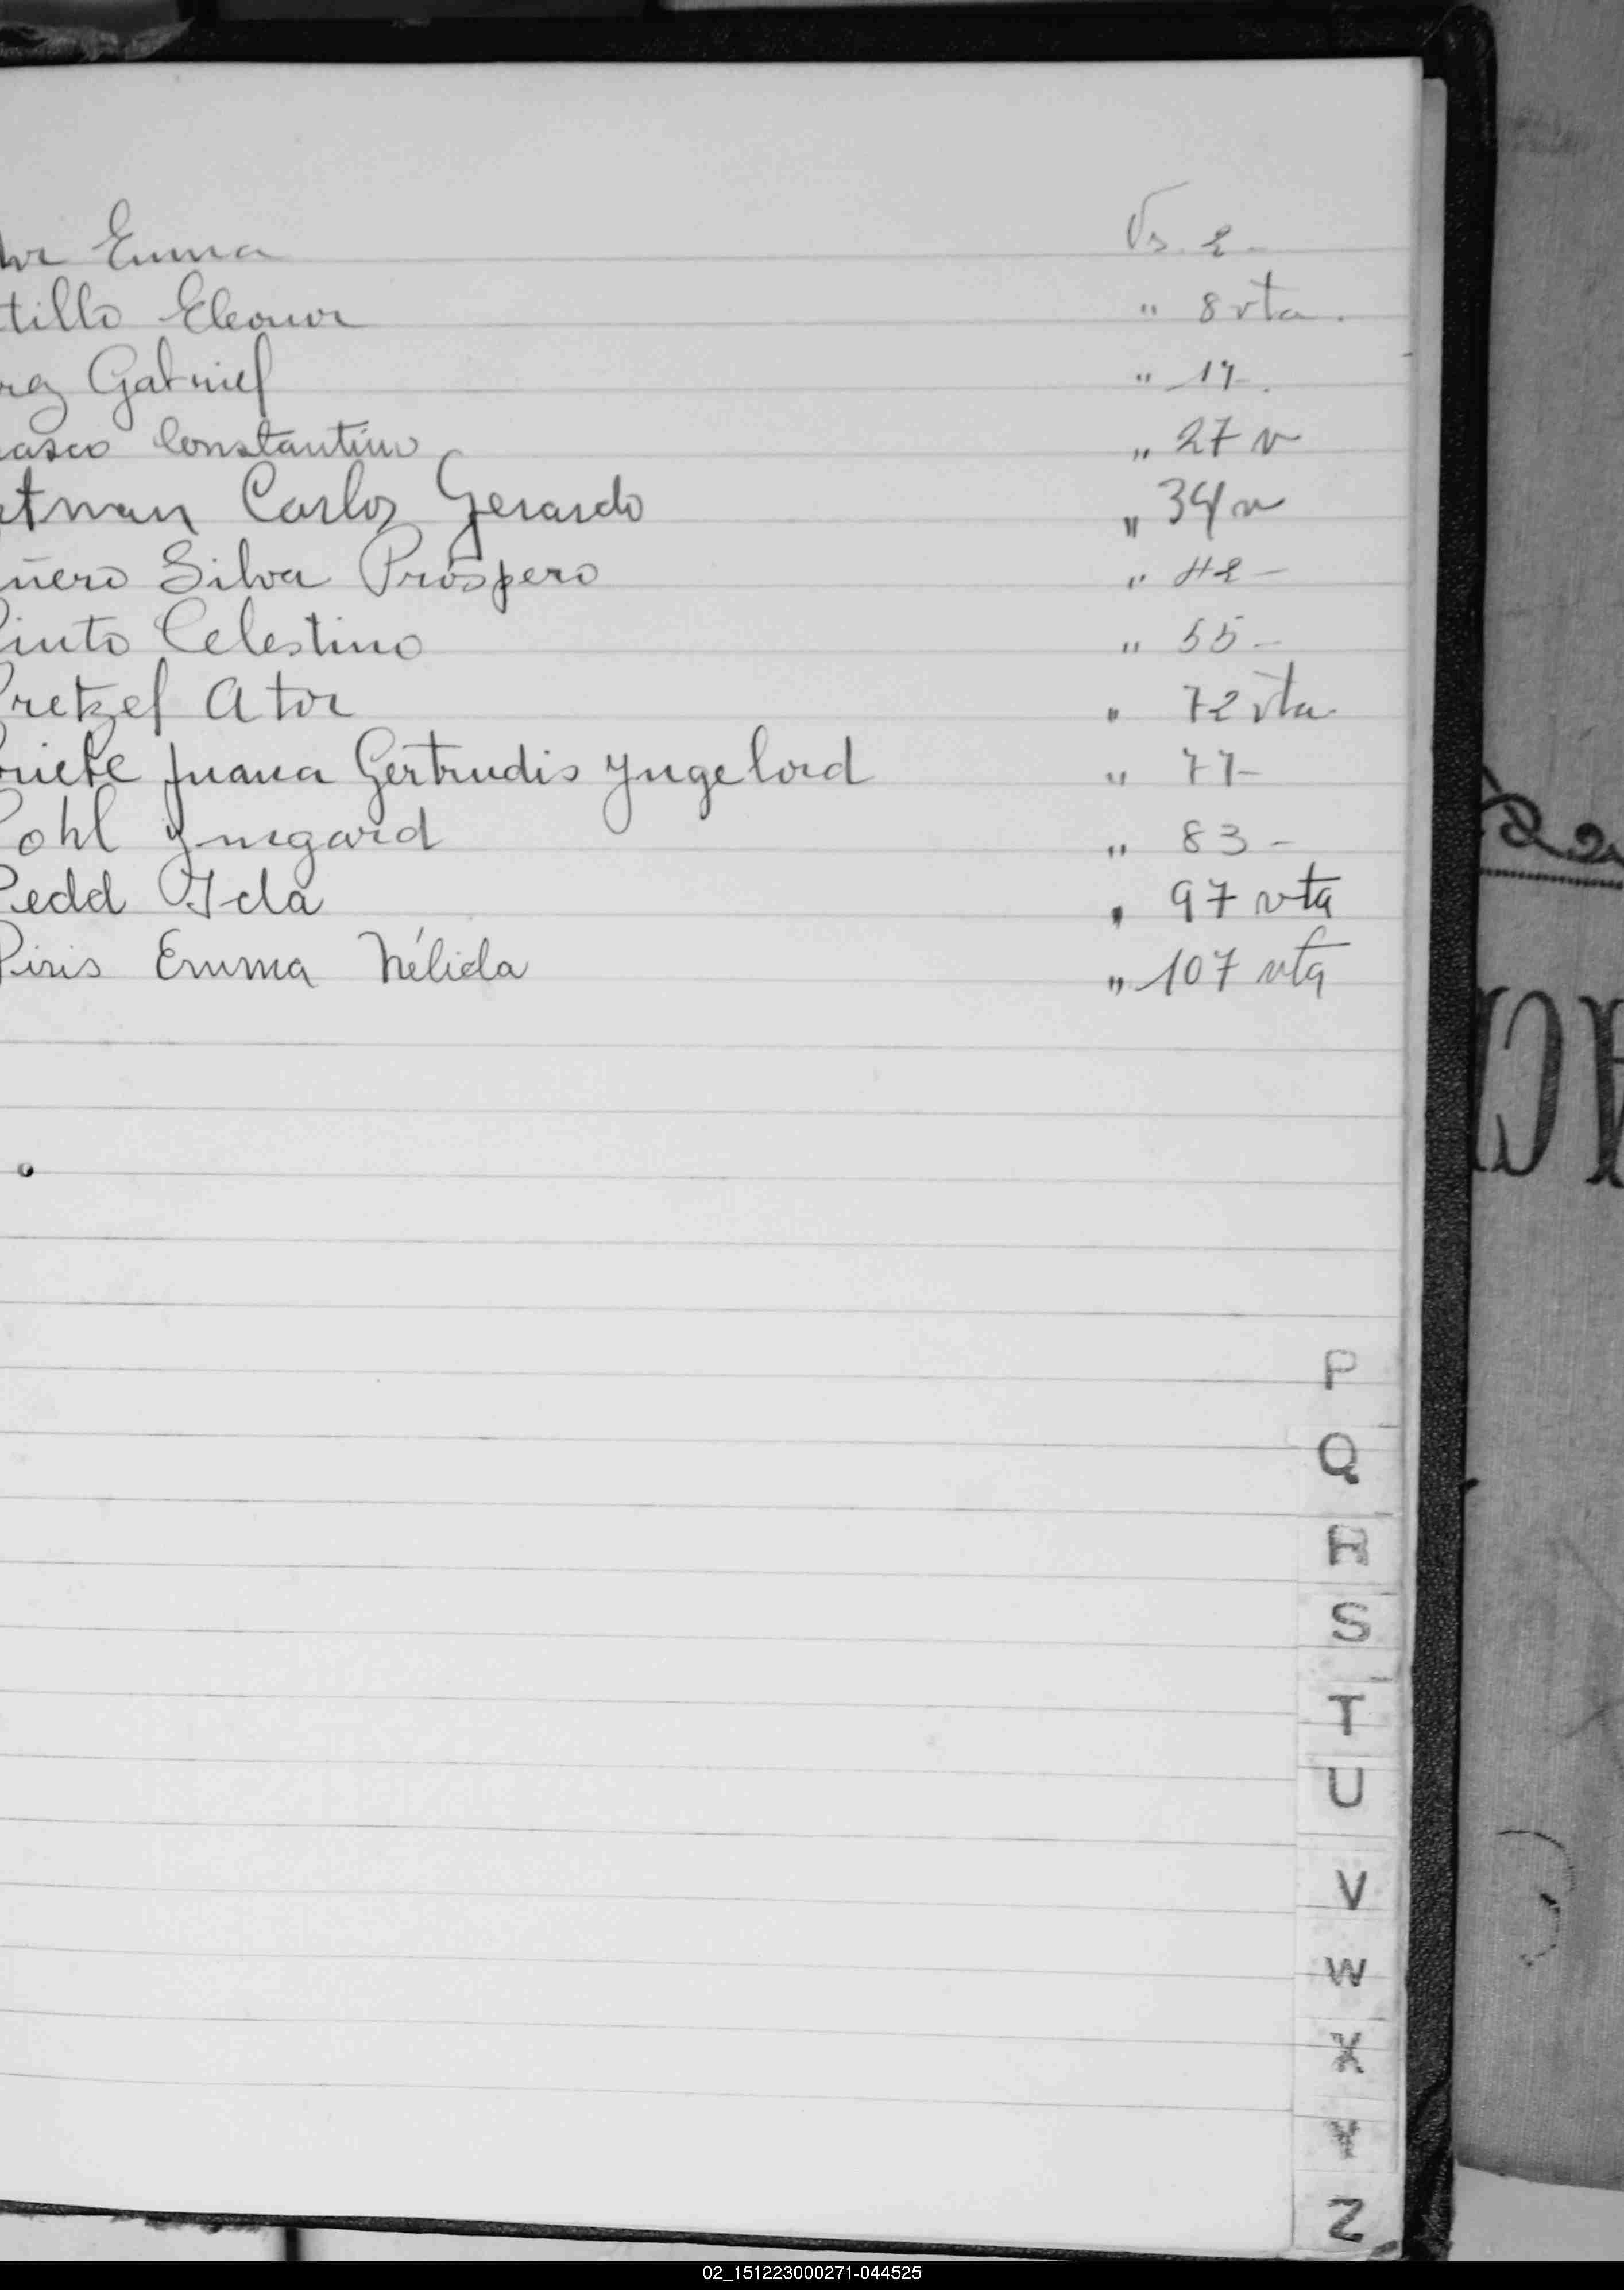 Emma Fs. 2-
tillo Eleonor " 8 vta.
Gabriel " 17-.
asco Constantino „ 27 v
tman Carlos Gerardo „ 34 v
ñero Silva Próspero „ 42-
into Celestino " 55-
retzel Ator " 72 vta
Juana Gertrudis Yngelord " 77-
ohl Yrmgard „ 83-
edd Ida „ 97 vta
Piris Emma Nélida „ 107 vta
P
Q
R
S
T
U
V
W
X
Y
Z
02_151223000271-044525